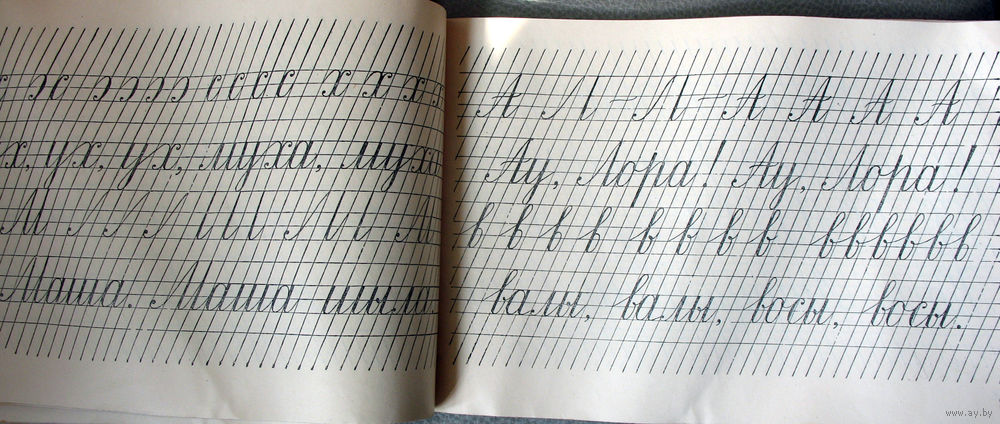 ɔc ɔɔɔɔ сссс х х х
х, ух, ух, муха, муха
М М М
Маша. Маша мыла.
А Л - Л - А А А А
Ау, Лора! Ау, Лора!
в в в в в в в в вввввв
валы, валы, восы, восы.
www.ay.by